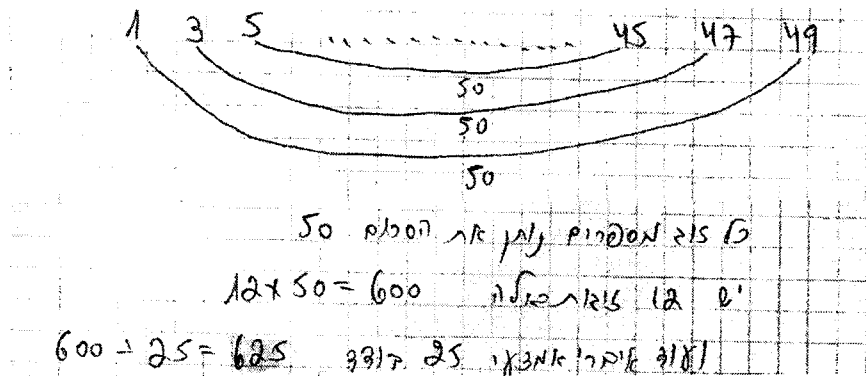 1 3 5 ........... 45 47 49
50
50
50
כל זוג מספרים נותן את הסכום 50
יש 12 זוגות כאלה 12 x 50 = 600
ועוד איברי אמצעי 25 בודד 600 + 25 = 625